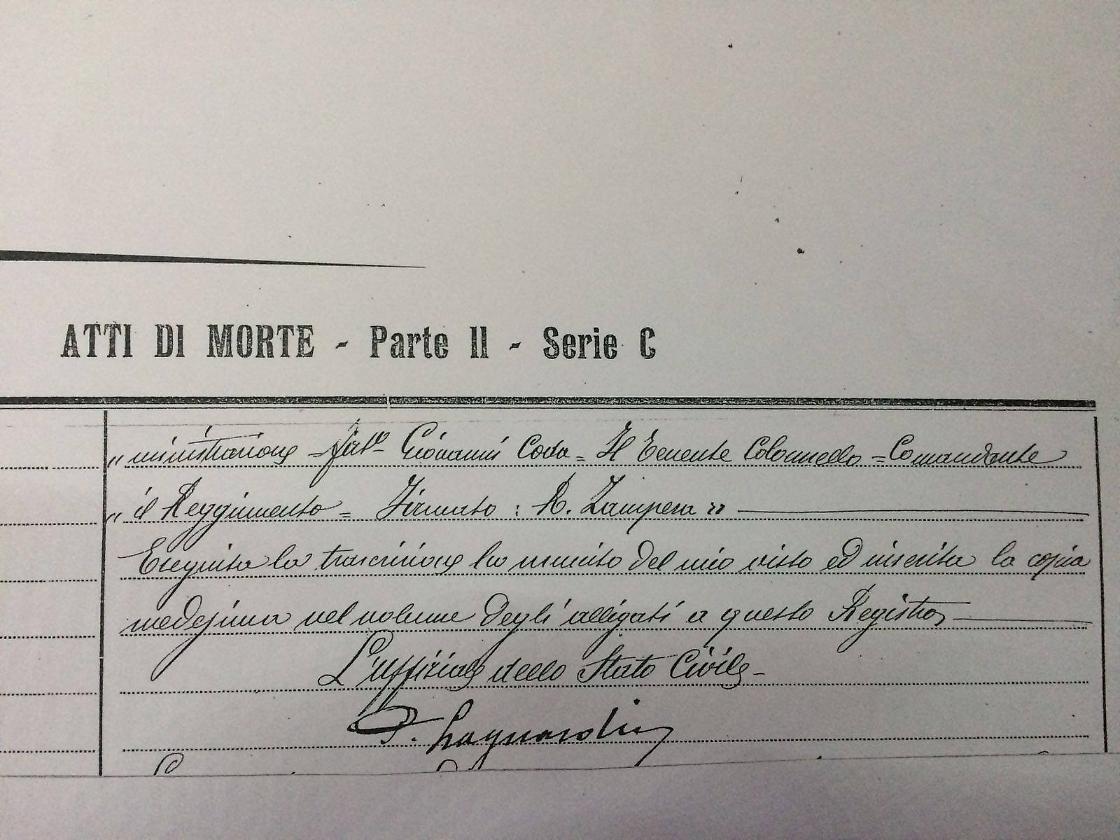 ATTI DI MORTE - Parte II - Serie C
„ ministrazione - Giovanni Coda = Il Tenente Colonnello = Comandante
„ il Reggimento = Firmato : R. Zampera „
Eseguita la trascrizione ho munito del mio visto ed inserita la copia
medesima nel volume degli allegati a questo Registro
L'uffiziale dello Stato Civile -